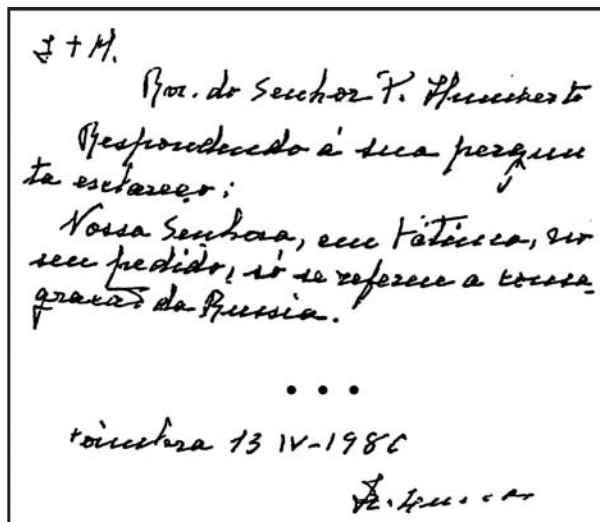 J + M.
Rev. do Senhor P. Humberto
Respondendo á sua pergun
ta esclareço:
Nossa Senhora, em Fátima, no
seu pedido, só se referiu a consa_
gração da Russia.
• • •
Coimbra 13 IV-1980